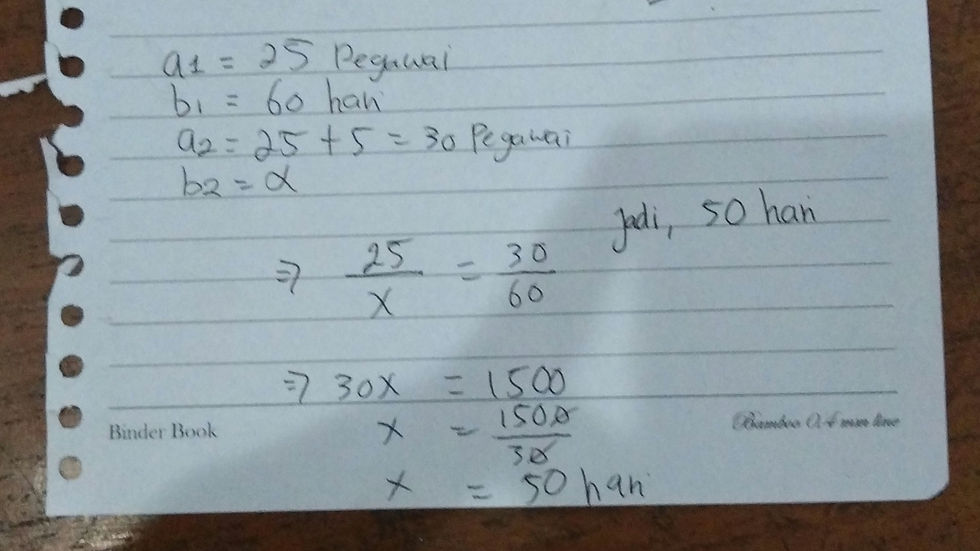 a1 = 25 Pegawai
b1 = 60 hari
a2 = 25 + 5 = 30 Pegawai
b2 = x
Jadi, 50 hari
⇒ 25/x = 30/60
⇒ 30x = 1500
x = 1500/30
x = 50 hari
Binder Book
Bamboo 0.4 mm line